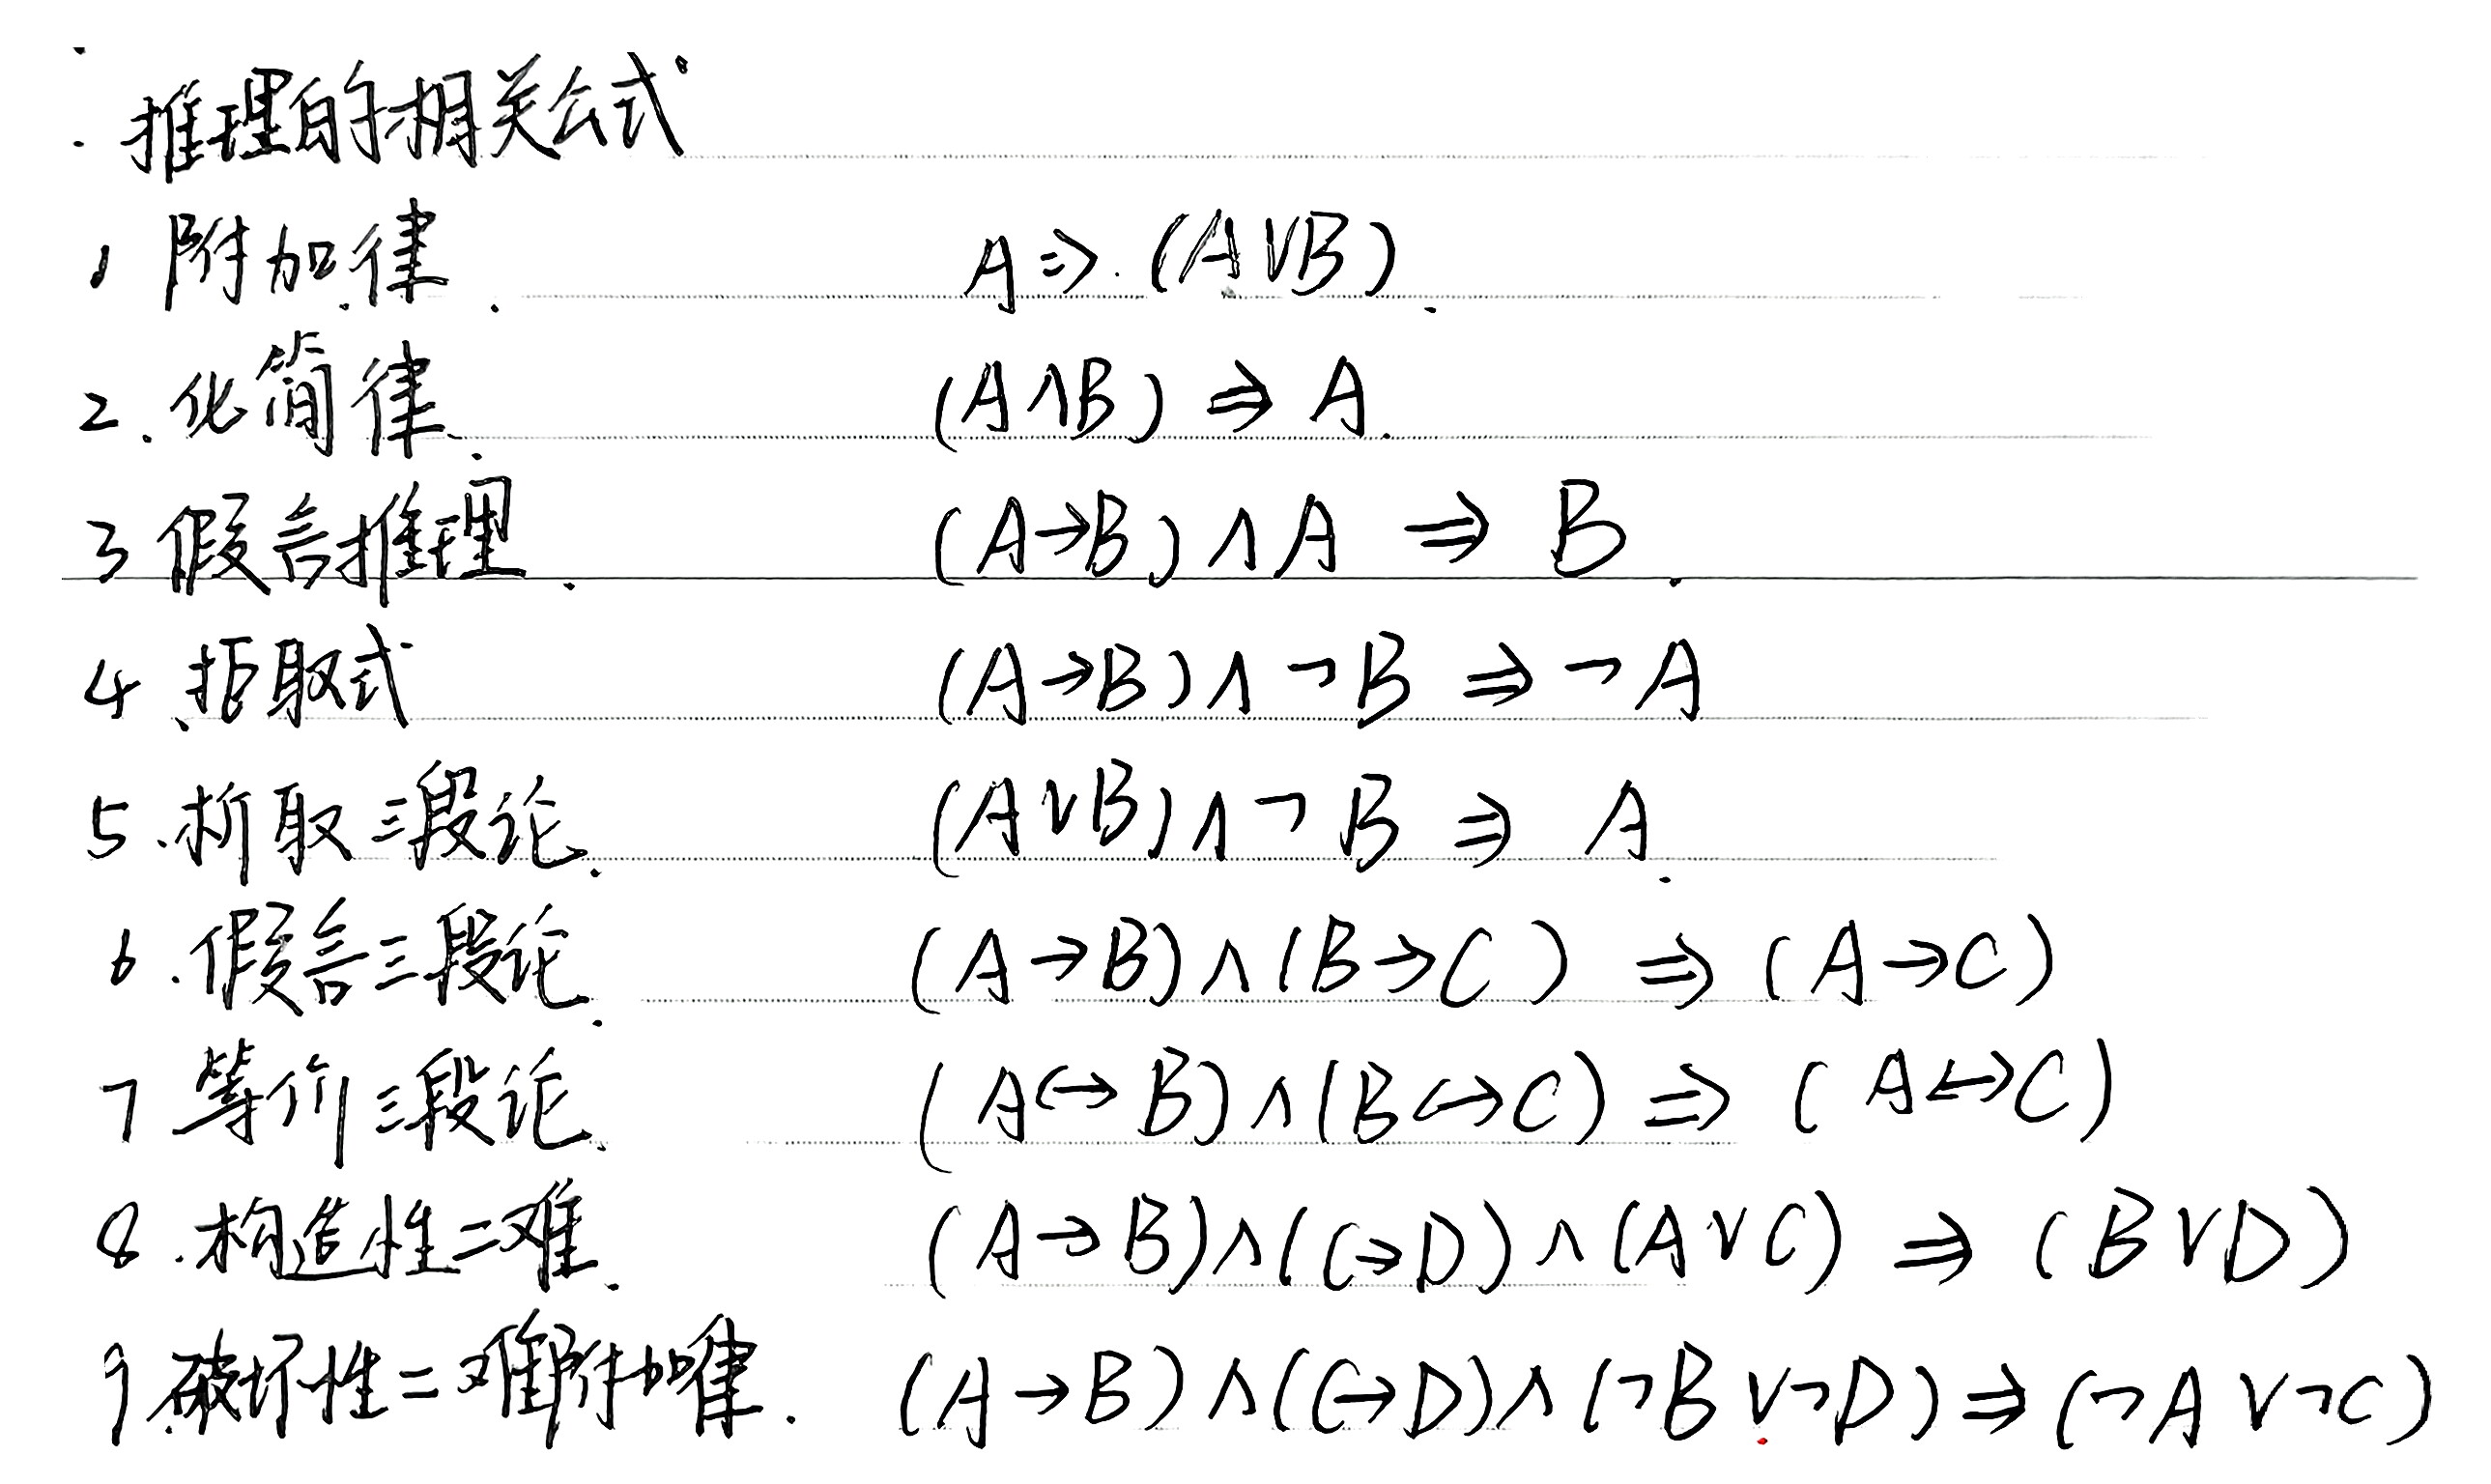 推理的相关公式
1 附加律. A⇒(A∨B).
2. 化简律. (A∧B)⇒A.
3 假言推理. (A→B)∧A⇒B.
4. 拒取式 (A→B)∧¬B⇒¬A
5. 析取三段论. (A∨B)∧¬B⇒A.
6. 假言三段论. (A→B)∧(B→C)⇒(A→C)
7 等价三段论. (A↔B)∧(B↔C)⇒(A↔C)
8. 构造性二难. (A→B)∧(C→D)∧(A∨C)⇒(B∨D)
9. 破坏性二难附加律. (A→B)∧(C→D)∧(¬B∨¬D)⇒(¬A∨¬C)